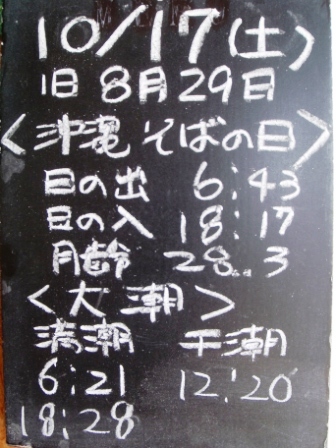 10/17(土)
旧 8月29日
<沖縄そばの日>
日の出 6:43
日の入 18:17
月齢 28.3
<大潮>
満潮 干潮
6:21 12:20
18:28